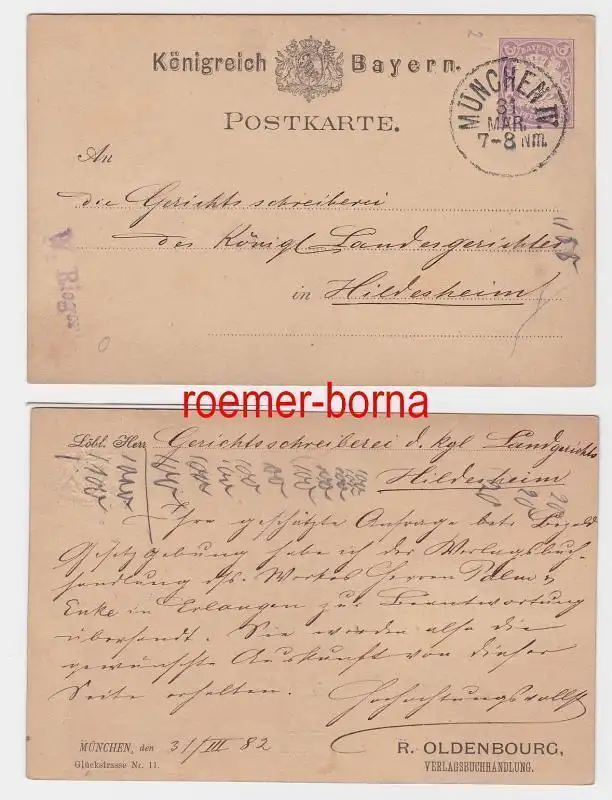 Königreich Bayern.
BAYERN
MÜNCHEN IV.
31
MAR.
7-8 Nm.
POSTKARTE.
An
die Gerichtsschreiberei
des Königl Landesgerichtes
in Hildesheim
W. Rieger
roemer-borna
Löbl. Herr Gerichtsschreiberei d. kgl Landgerichts
Hildesheim
Ihre geschätzte Anfrage betr Bezold
Gesetzgebung habe ich der Verlagsbuch-
handlung dss. Werkes Herren Palm &
Enke in Erlangen zur Beantwortung
übersandt. Sie werden also die
gewünschte Auskunft von dieser
Seite erhalten. Hochachtungsvollst
MÜNCHEN, den 31/III 82
Glückstrasse Nr. 11.
R. OLDENBOURG,
VERLAGSBUCHHANDLUNG.